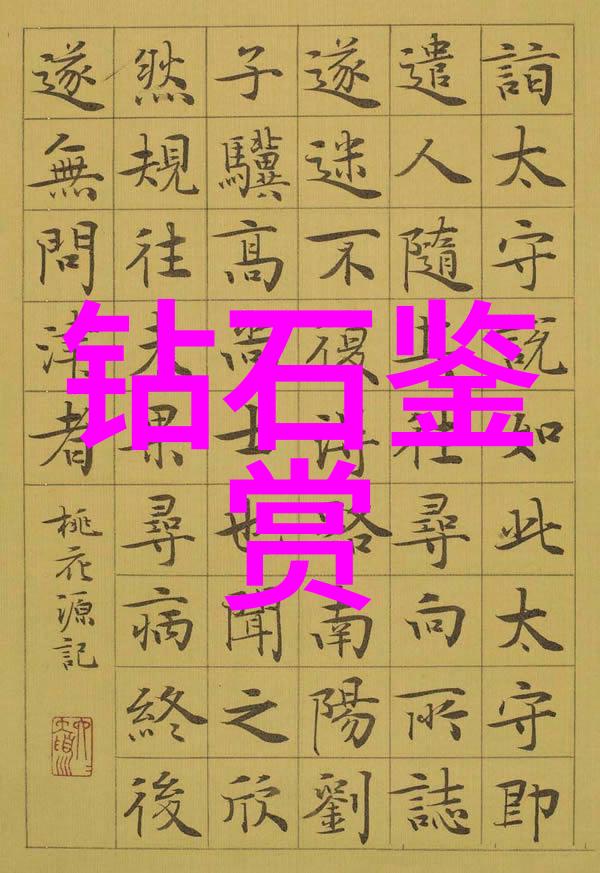 詣太守說如此太守即
遣人隨往尋向所誌
遂迷不復得路南陽劉
子驥高尚士也聞之欣
然規往未果尋病終後
遂無問津者
桃花源記
钻石鉴
赏